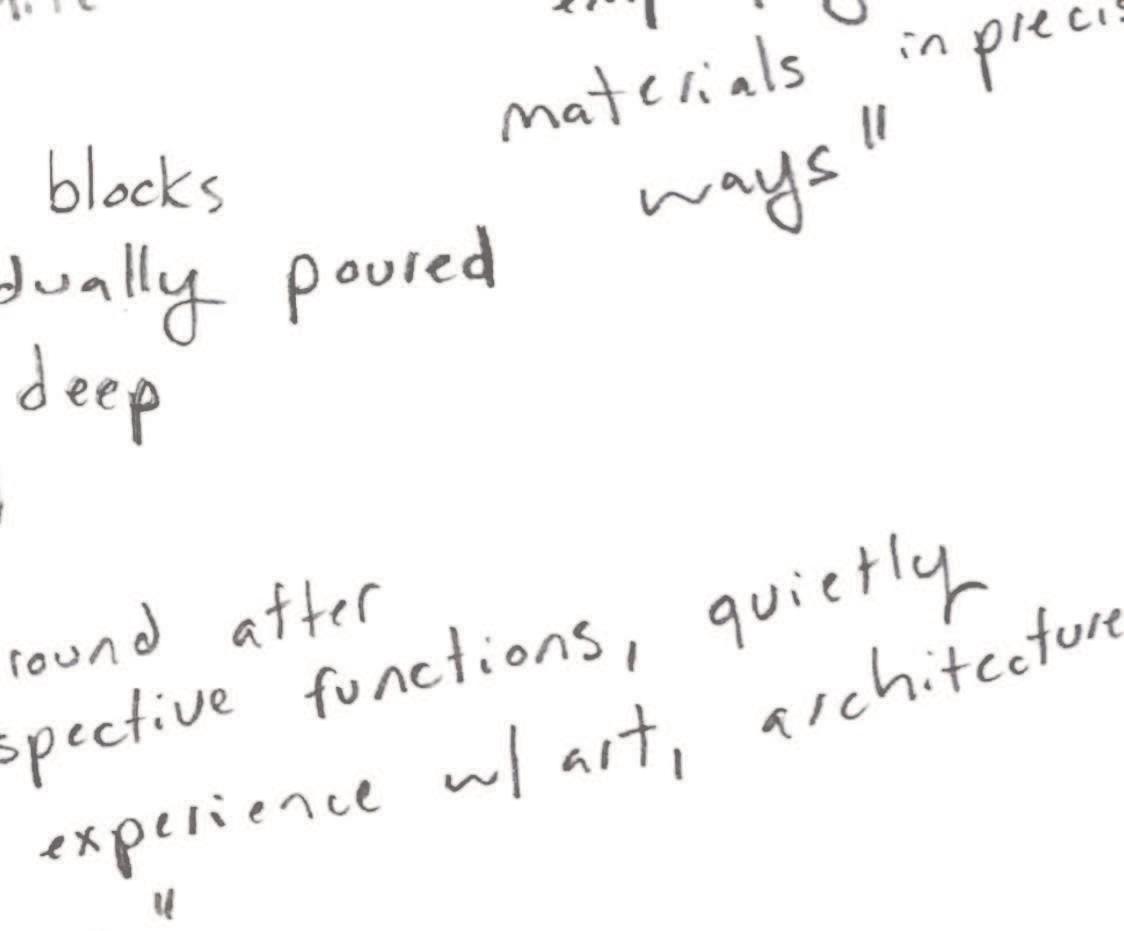 materials in precis
ways"
blocks
dually poured
deep
round after
spective functions, quietly
experience w/ art, architecture
"